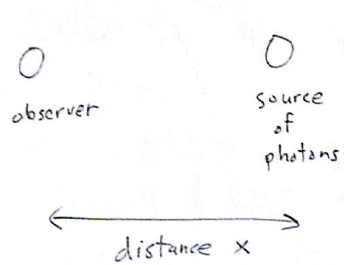 observer
source
of
photons
distance x